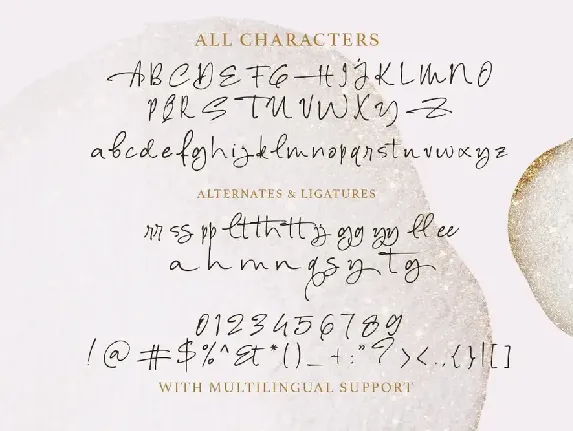 ALL CHARACTERS
A B C D E F G H I J K L M N O
P Q R S T U V W X Y Z
a b c d e f g h i j k l m n o p q r s t u v w x y z
ALTERNATES & LIGATURES
rr ss pp lt tt th tt gg yy ll ee
a h m n g s y t g
0 1 2 3 4 5 6 7 8 9
! @ # $ % ^ & * ( ) _ + : " ? > < . , { } | [ ]
WITH MULTILINGUAL SUPPORT